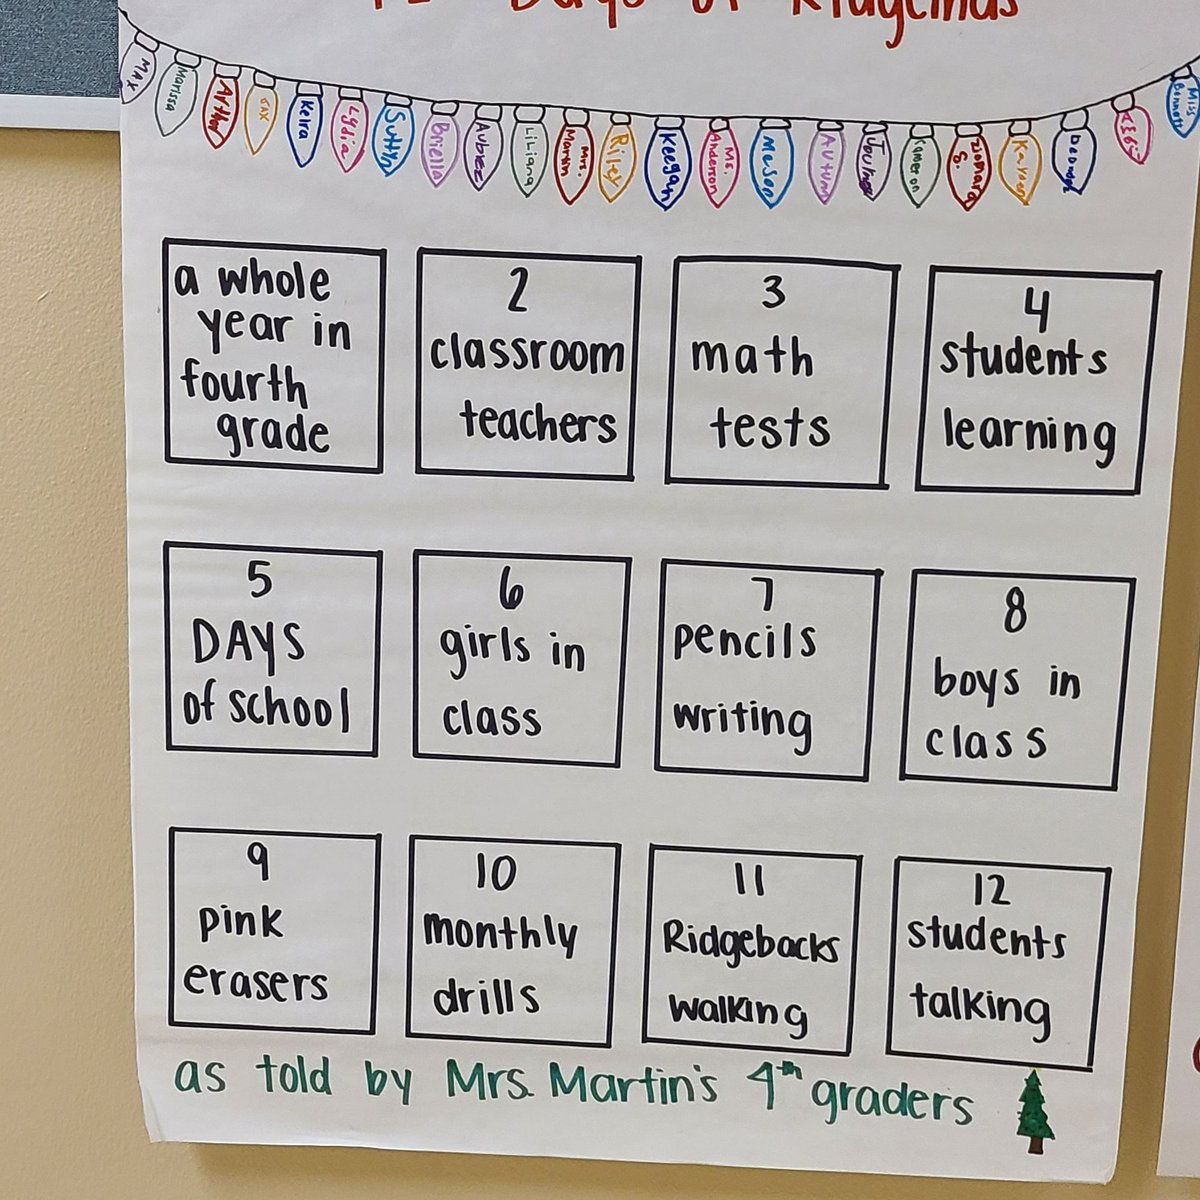 12 Days of Ridgemas
Max
Marissa
Arthur
Jax
Keira
Lydia
Sutton
Briella
Aubree
Liliana
Mrs. Martin
Riley
Keegan
Ms. Anderson
Mason
Autumn
Kameron
Ziomara S.
Miss Bennett
a whole
year in
fourth
grade
2
classroom
teachers
3
math
tests
4
students
learning
5
DAYS
of school
6
girls in
class
7
pencils
writing
8
boys in
class
9
pink
erasers
10
monthly
drills
11
Ridgebacks
walking
12
students
talking
as told by Mrs. Martin's 4th graders